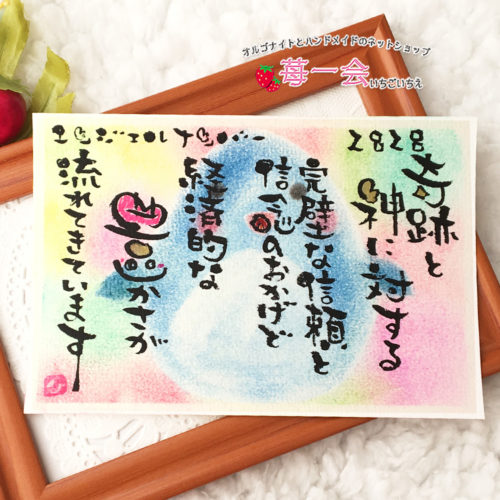 オルゴナイトとハンドメイドのネットショップ
苺一会
いちごいちえ
エンジェルナンバー 2828
奇跡と
神に対する
完璧な信頼と
信念のおかげで
経済的な
豊かさが
流れてきています